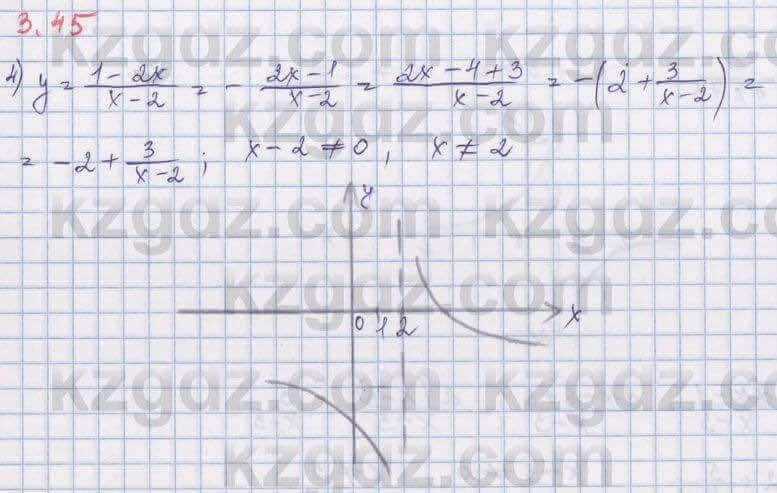 3.45
kzgdz.com kzgdz.com
4) y = \frac{1-2x}{x-2} = - \frac{2x-1}{x-2} = \frac{2x-4+3}{x-2} = -(2 + \frac{3}{x-2}) =
kzgdz.com
= -2 + \frac{3}{x-2}; x-2 ≠ 0, x ≠ 2
y
kzgdz.com kzgdz.com
kzgdz.com
0 1 2 x
kzgdz.com kzgdz.com
kzgdz.com